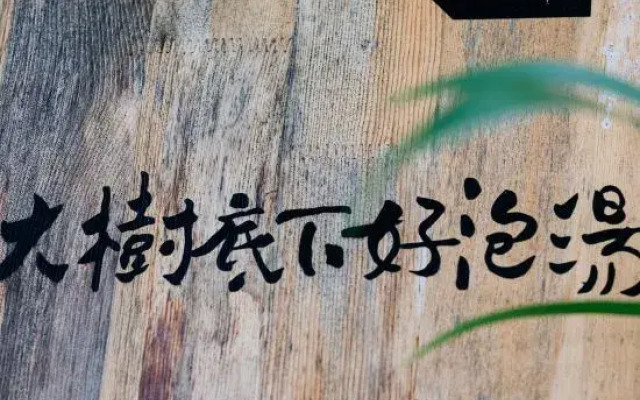 大樹底下好泡湯